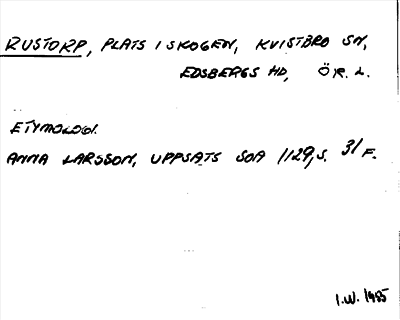 RUSTORP, PLATS I SKOGEN, KVISTBRO SN,
EDSBERGS HD, ÖR. L.
ETYMOLOGI.
ANNA LARSSON, UPPSATS SOA 1129, S. 31 F.
I.W. 1985